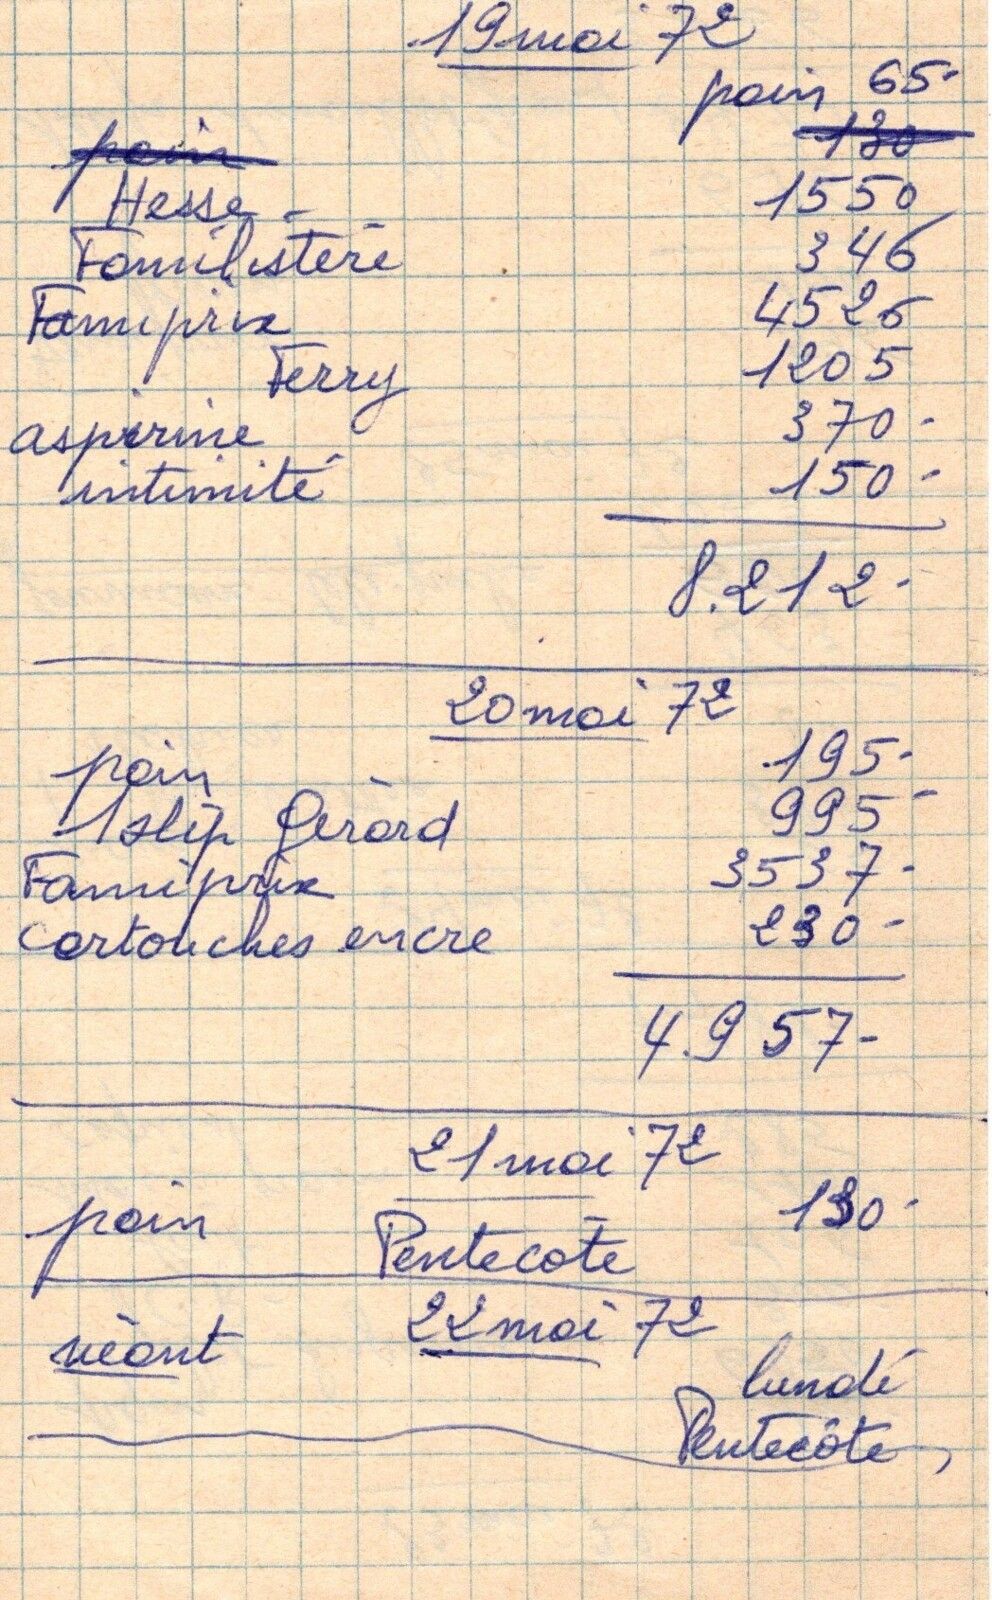 19 mai 72
pain 65-
pain 130
Hesse - 1550
Familistère 346
Famiprix 4526
Ferry 1205
aspirine 370-
intimité 150-
8.212-
20 mai 72
pain 195-
1 slip Gérard 995-
Famiprix 3537-
cartouches encre 230-
4.957-
21 mai 72
pain 130-
Pentecôte
22 mai 72
néant
lundi
Pentecôte